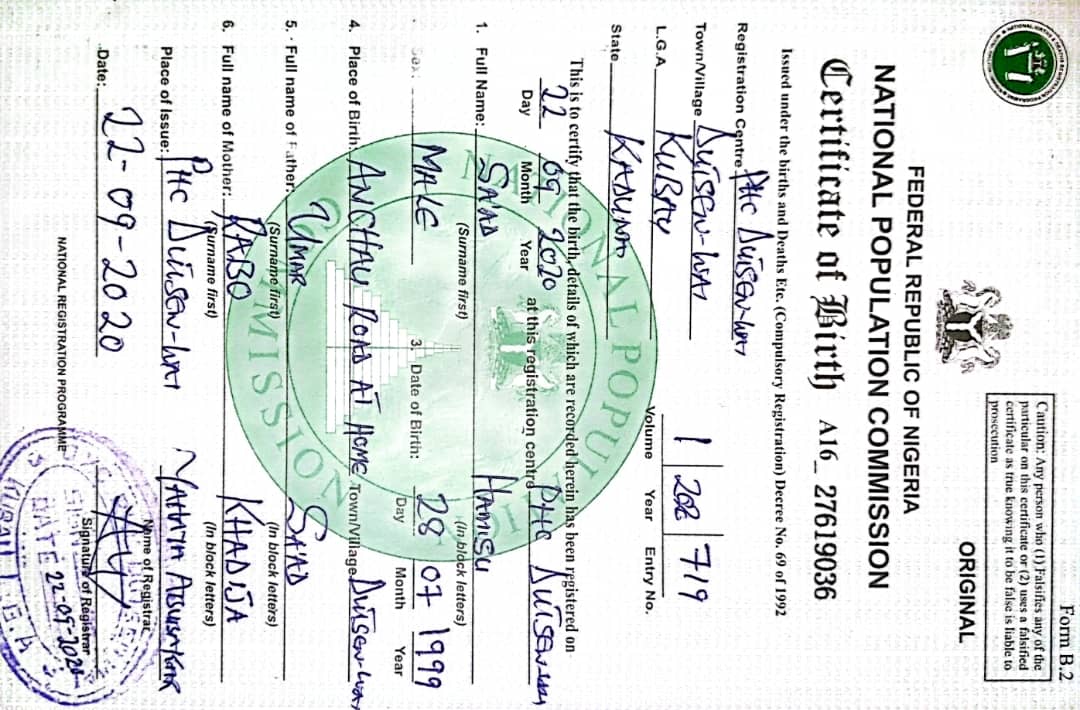 Form B.2
Caution: Any person who (1) Falsifies any of the
particular on this certificate or (2) uses a falsified
certificate as true knowing it to be false is liable to
prosecution
ORIGINAL
FEDERAL REPUBLIC OF NIGERIA
NATIONAL POPULATION COMMISSION
Certificate of Birth A16_ 27619036
Issued under the births and Deaths Etc. (Compulsory Registration) Decree No. 69 of 1992
Registration Centre PHC DUTSEN-WAI
Town/Village DUTSEN-WAI
L.G.A. KUBAU Volume Year Entry No.
1 202 719
State KADUNA
This is to certify that the birth, details of which are recorded herein has been registered on
22 09 2020 at this registration centre PHC DUTSEN-WAI
Day Month Year
1. Full Name: SAAD HAMISU
(Surname first) (In block letters)
Sex: MALE 3. Date of Birth: 28 07 1999
Day Month Year
4. Place of Birth: ANCHAU ROAD AT HOME Town/Village DUTSEN-WAI
5. Full name of Father: UMAR SA'AD
(Surname first) (In block letters)
6. Full name of Mother: RABO KHADIJA
(Surname first) (In block letters)
Place of Issue: PHC DUTSEN-WAI YAHAYA
Name of Registrar
Date: 22-09-2020
Signature of Registrar
NATIONAL REGISTRATION PROGRAMME
DATE 22-09-2020
NATIONAL POPULATION COMMISSION